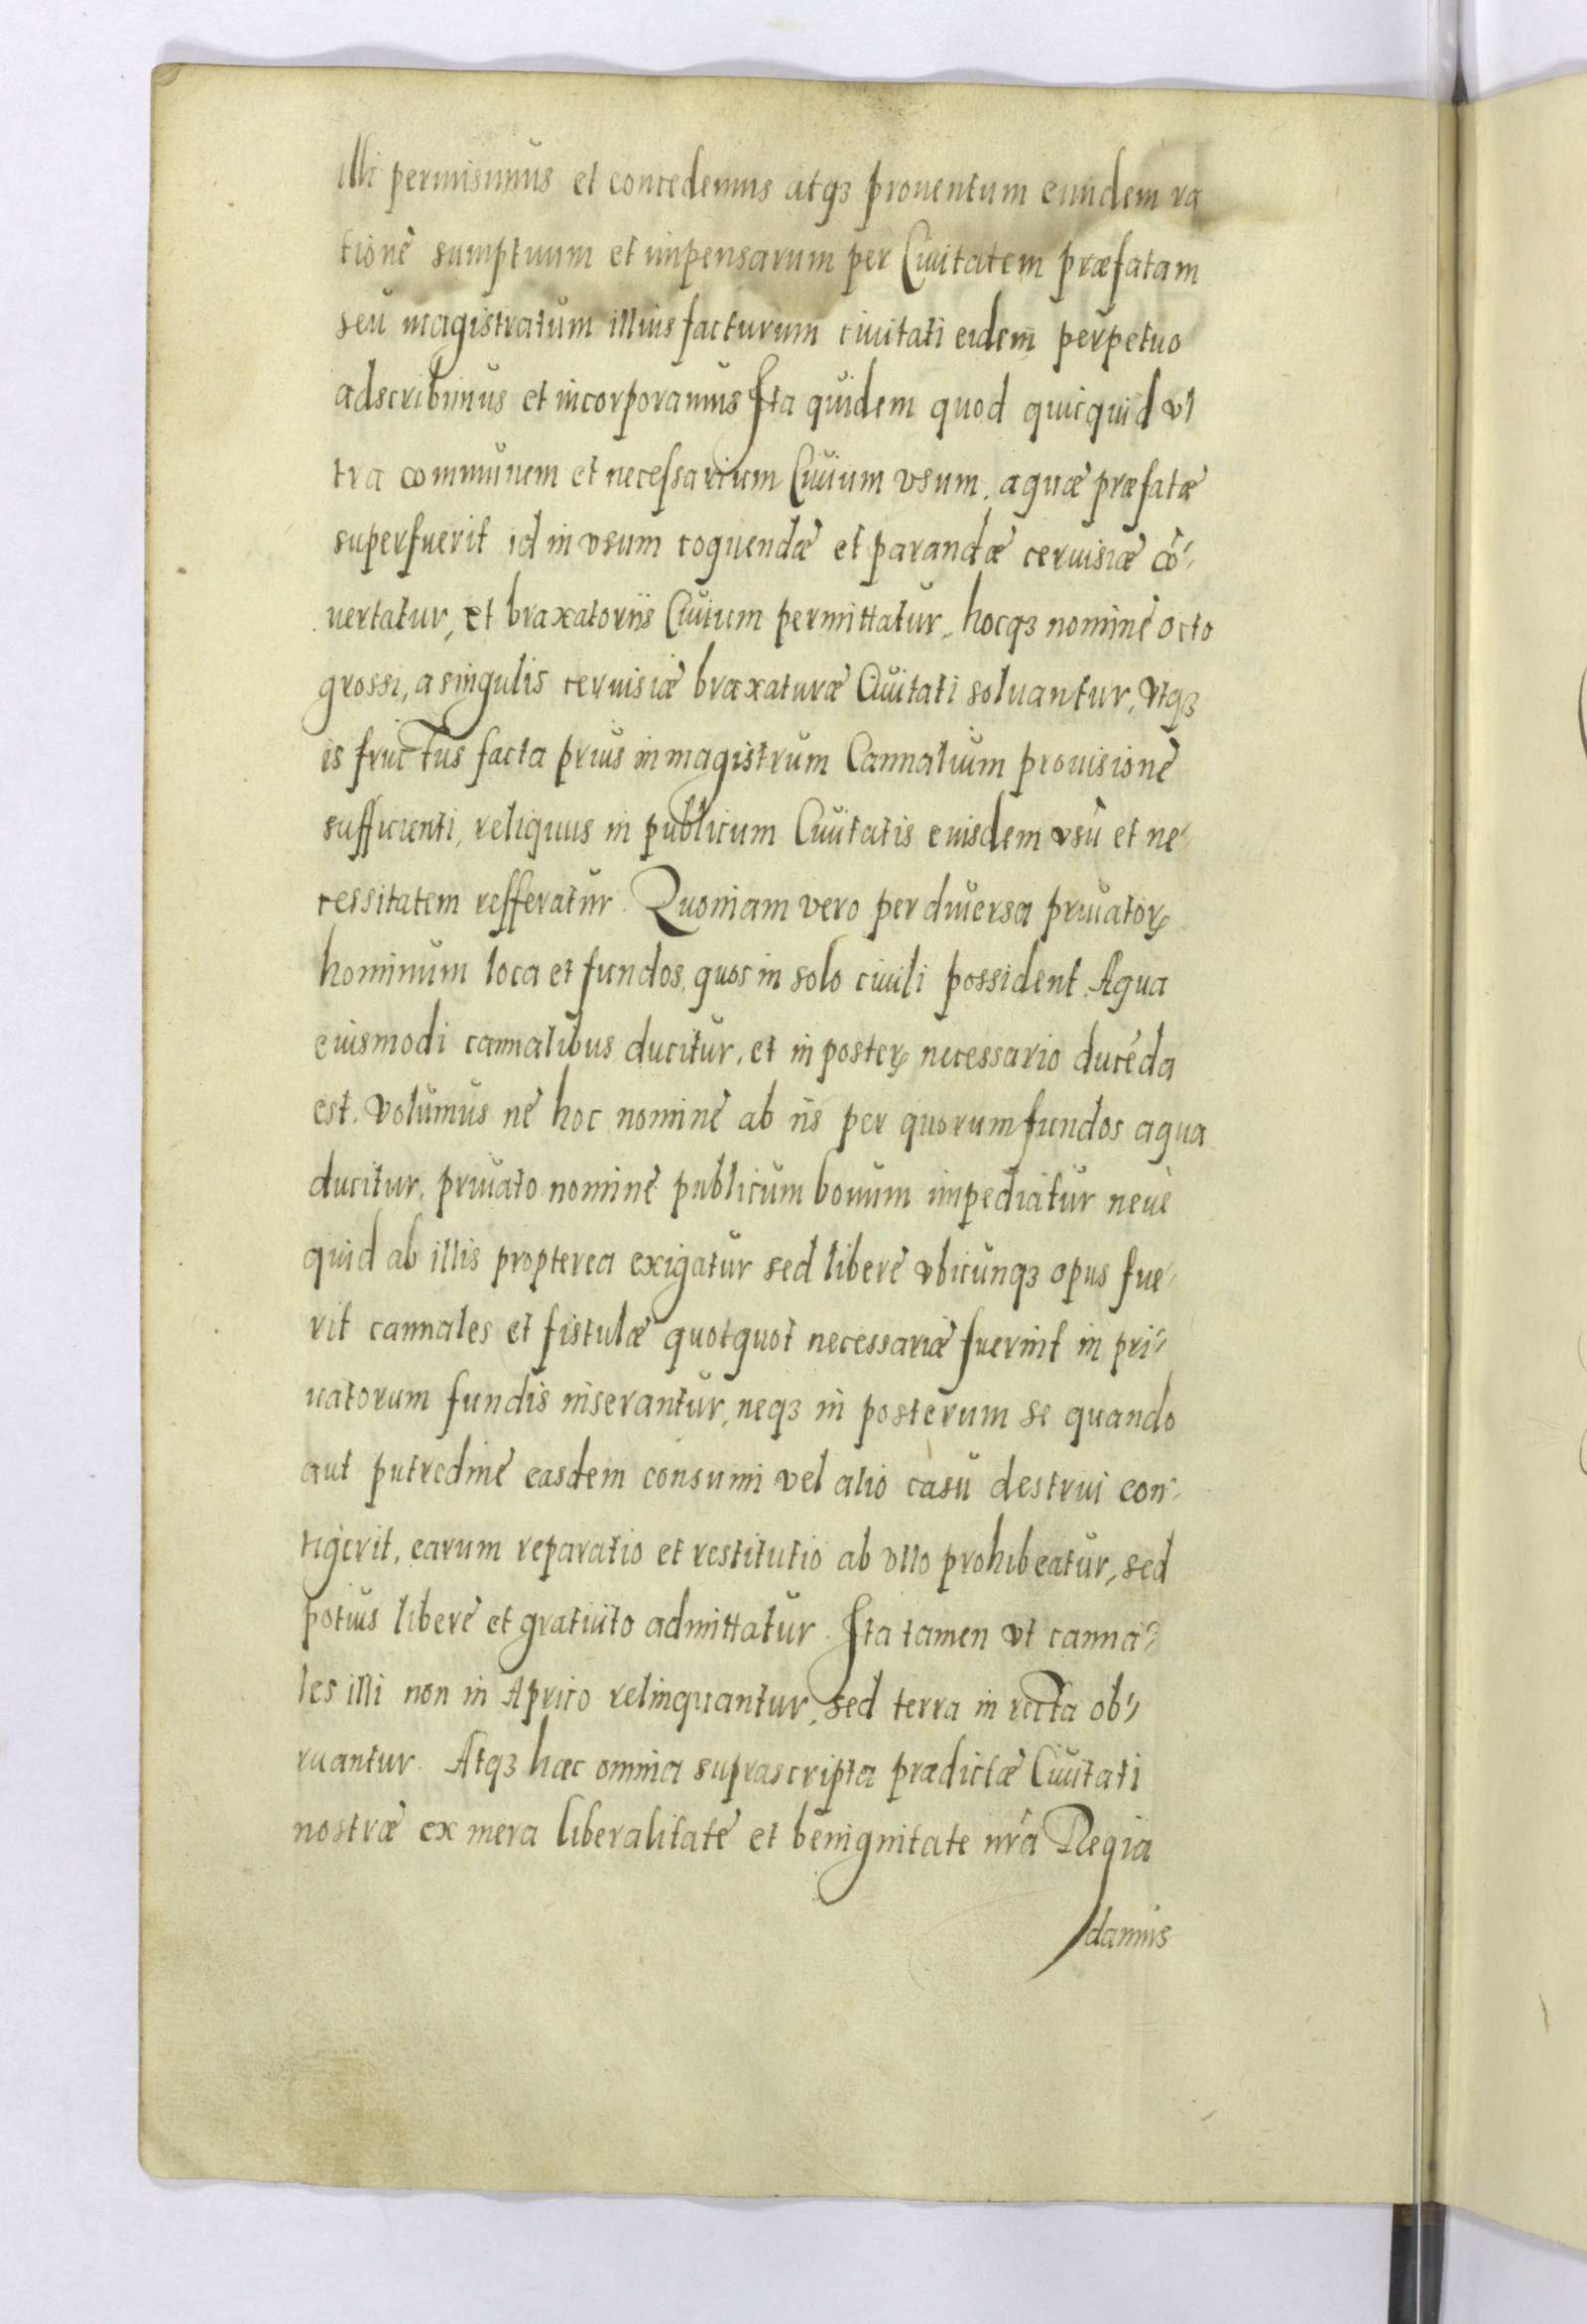 illi permisimus et concedemus atqꝫ prouentum eundem ra
tione sumptuum et impensarum per Ciuitatem præfatam
seu magistratum illius facturum ciuitati eidem perpetuo
adscribimus et incorporamus Ita quidem quod quicquid vl
tra communem et necessarium Ciuium vsum, aquæ præfatæ
superfuerit id in vsum coquendæ et parandæ ceruisiæ cõ-
uertatur, et braxatoriis Ciuium permittatur, hocqꝫ nomine octo
grossi, a singulis ceruisiæ braxaturæ Ciuitati soluantur, Vtqꝫ
is fructus facta prius in magistrum Cannalium prouisione
sufficienti, reliquus in publicum Ciuitatis euisdem vsũ et ne-
cessitatem refferatur. Quoniam vero per diuersa priuatorꝝ
hominum loca et fundos, quos in solo ciuili possident Aqua
eiusmodi cannalibus ducitur, et in posterꝝ necessario ducẽda
est. Volumus ne hoc nomine ab iis per quorum fundos aqua
ducitur, priuato nomine publicum bonum impediatur neue
quid ab illis propterea exigatur sed libere vbicunqꝫ opus fue-
rit cannales et fistulæ quotquot necessariæ fuerint in pri-
uatorum fundis inserantur, neqꝫ in posterum se quando
aut putredine easdem consumi vel alio casu destrui con-
tigerit, earum reparatio et restitutio ab vllo prohibeatur, sed
potius libere et gratuito admittatur. Ita tamen vt canna-
les illi non in Aprico relinquantur, sed terra in recta ob-
ruantur. Atqꝫ hæc omnia suprascripta prædictæ Ciuitati
nostræ ex mera liberalitate et benignitate nr̃a Regia
damus